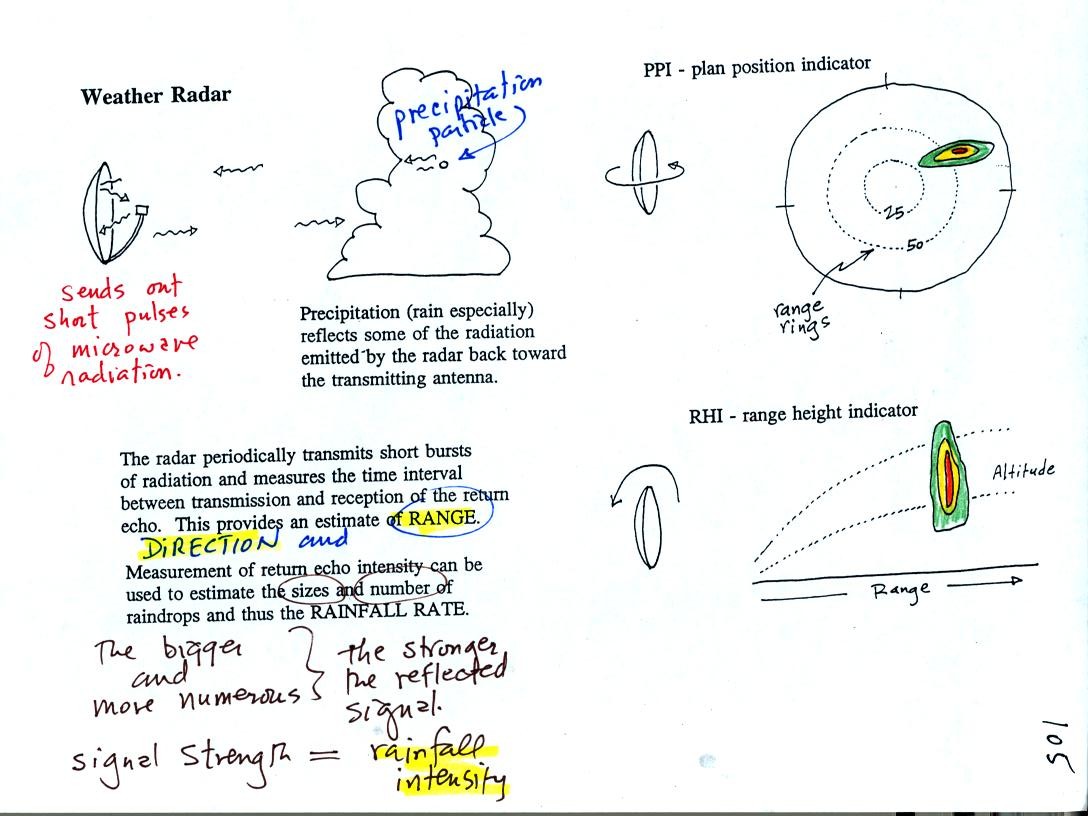 Weather Radar
precipitation
particle
sends out
short pulses
of microwave
radiation.
Precipitation (rain especially)
reflects some of the radiation
emitted by the radar back toward
the transmitting antenna.
The radar periodically transmits short bursts
of radiation and measures the time interval
between transmission and reception of the return
echo. This provides an estimate of RANGE.
DIRECTION and
Measurement of return echo intensity can be
used to estimate the sizes and number of
raindrops and thus the RAINFALL RATE.
The bigger
and
more numerous
the stronger
the reflected
signal.
signal strength = rainfall
intensity
PPI - plan position indicator
25
50
range
rings
RHI - range height indicator
Altitude
Range
105